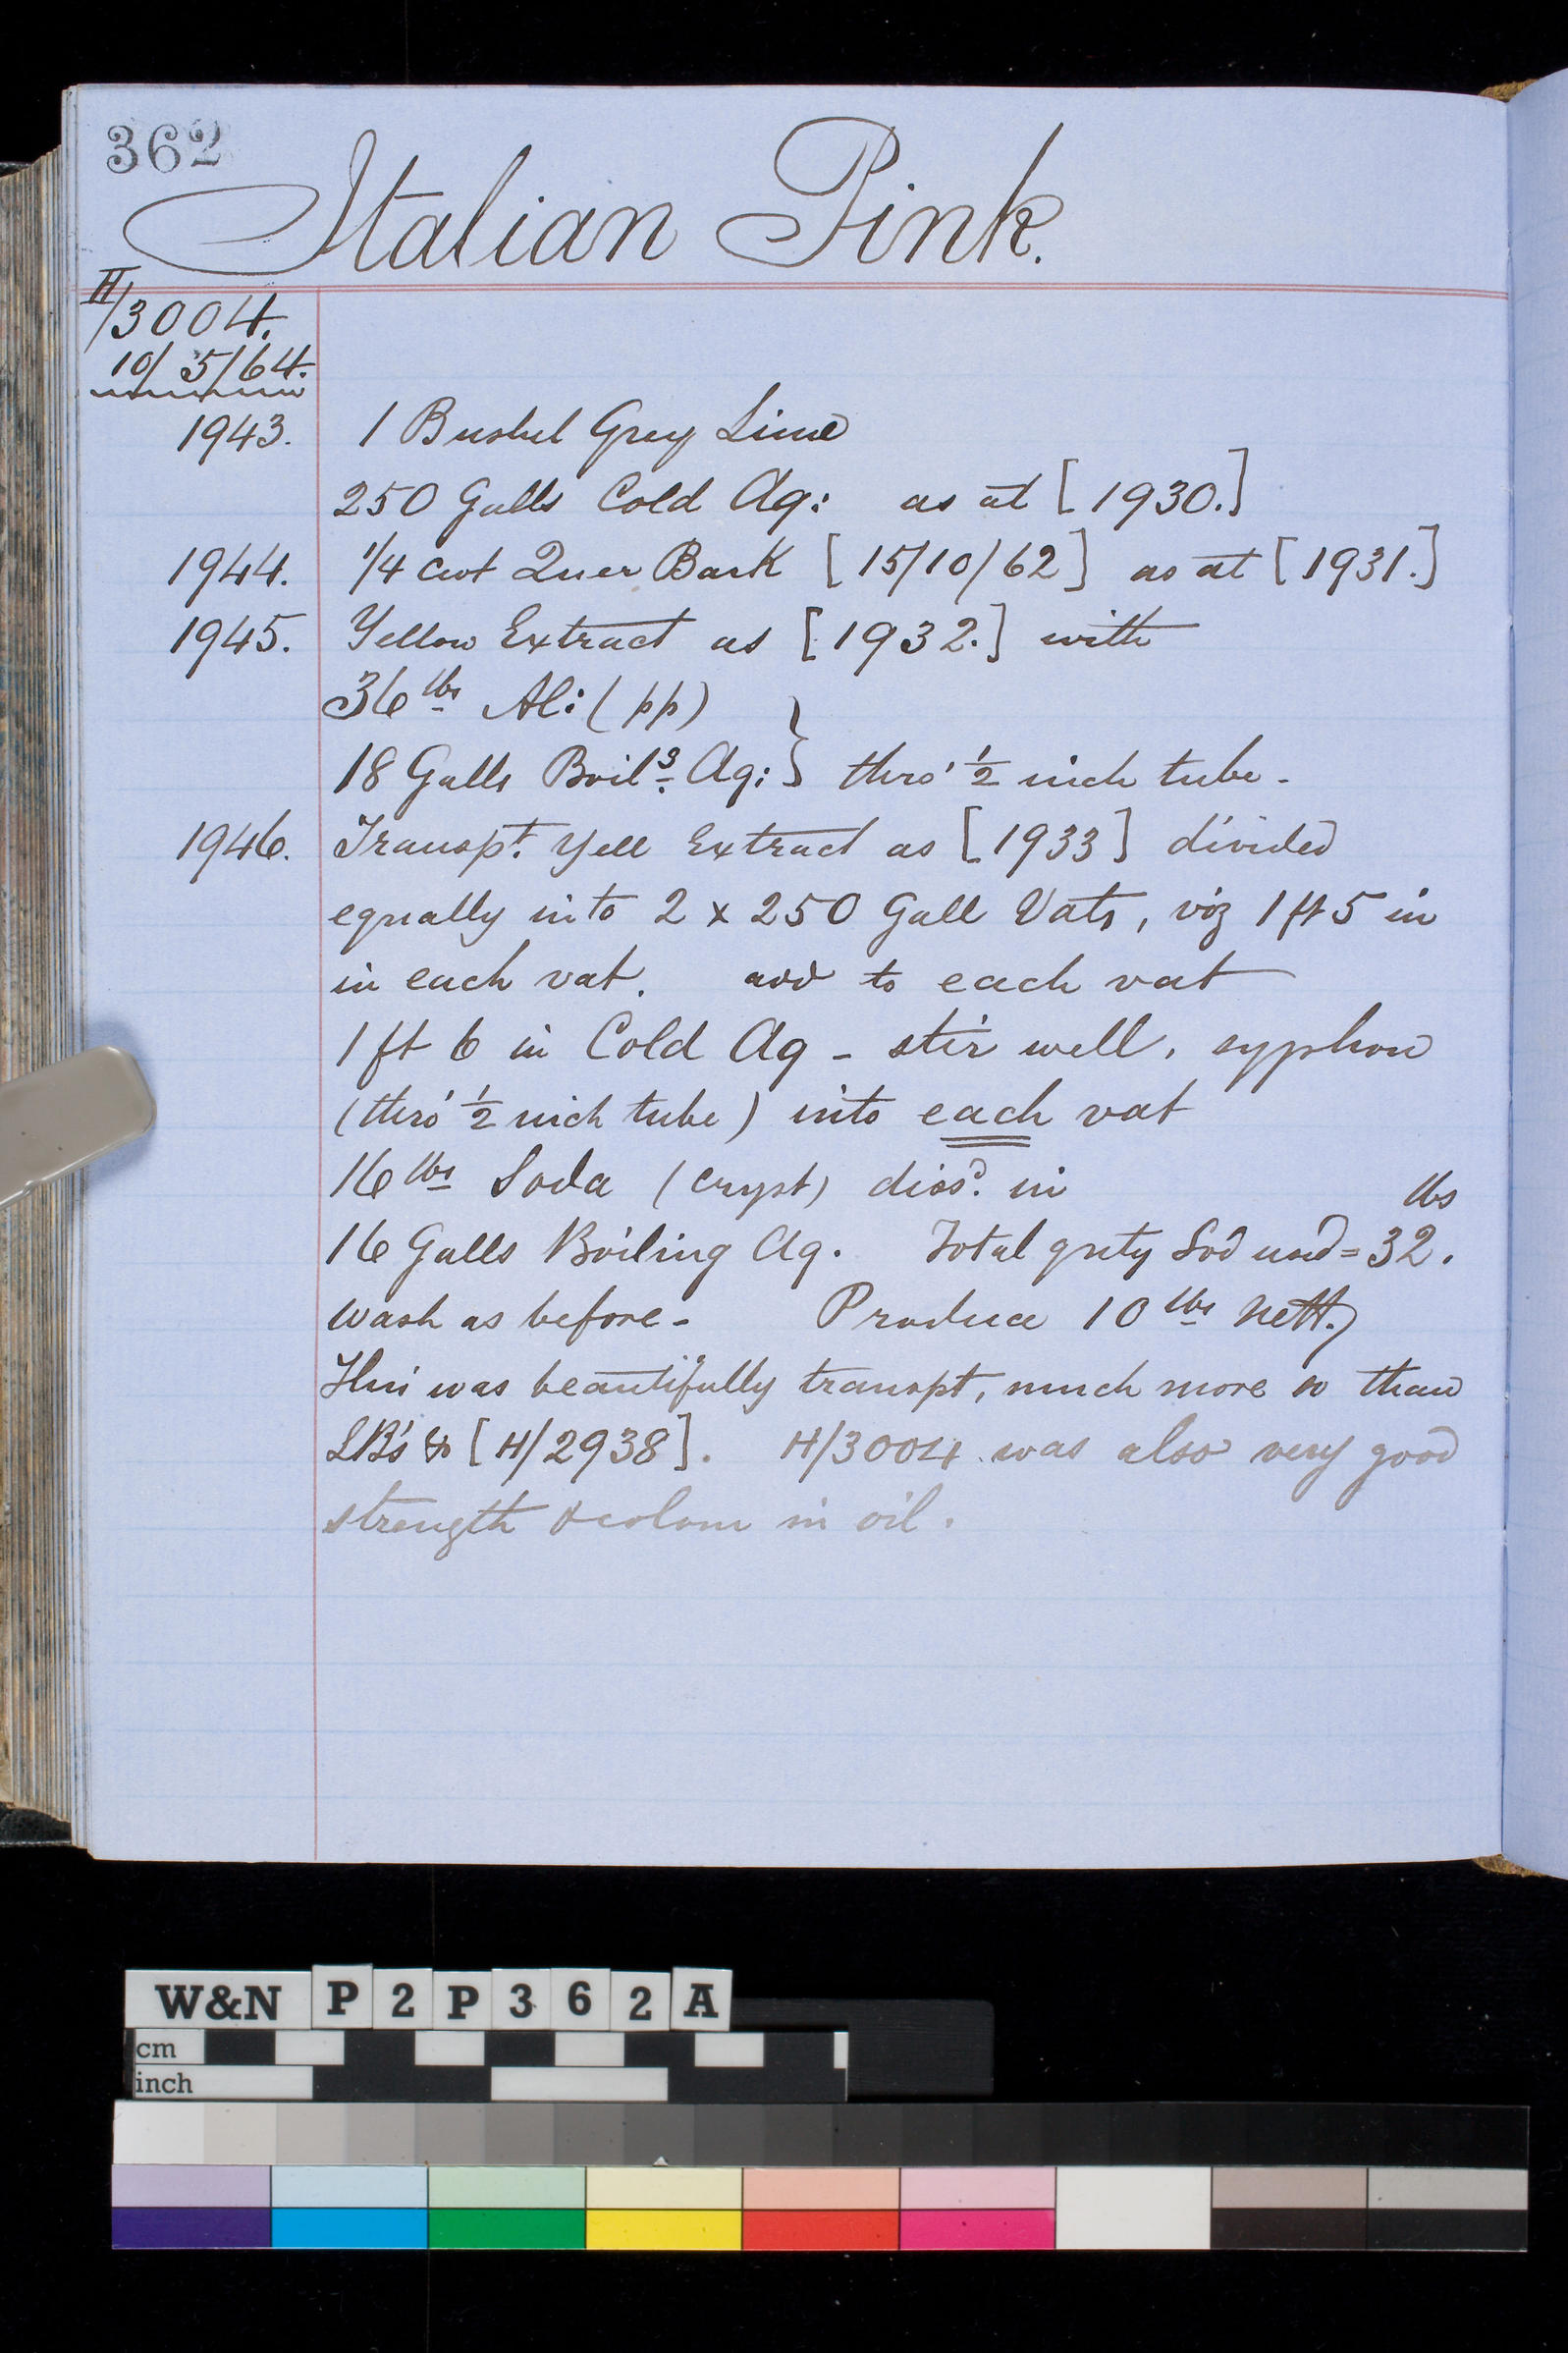 362
Italian Pink.
H/3004.
10/5/64.
1943. 1 Bushel Grey Lime
250 Galls Cold Aq: as at [1930.]
1944. 1/4 cwt Quer Bark [15/10/62] as at [1931.]
1945. Yellow Extract as [1932.] with
36 lbs Al: (pp)
18 Galls Boilg. Aq: } thro' 1/2 inch tube -
1946. Transpt. Yell Extract as [1933] divided
equally into 2 x 250 Gall Vats, viz 1 ft 5 in
in each vat. add to each vat
1 ft 6 in Cold Aq - stir well, syphon
(thro' 1/2 inch tube) into each vat
16 lbs Soda (cryst) dissd. in
lbs
16 Galls Boiling Aq. Total qnty Sod used = 32.
Wash as before - Produce 10 lbs nett.
This was beautifully transpt, much more so than
LB's [H/2938]. H/3004 was also very good
strength & colour in oil.
W&N P2P362A
cm
inch